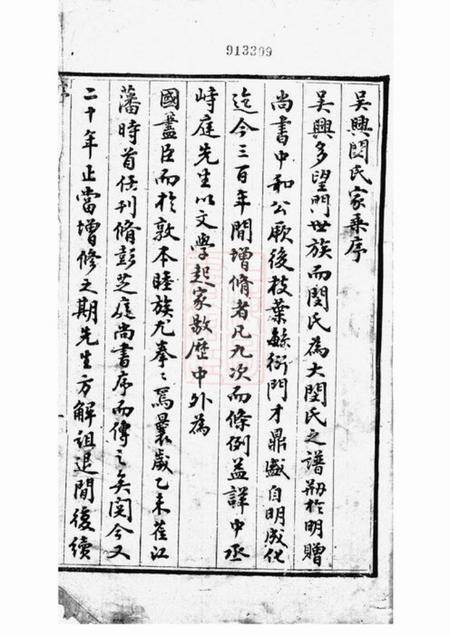 913399
吳興閔氏家乘序
吳興多望門世族而閔氏為大閔氏之譜刱於明贈
尚書中和公厥後枝葉緐衍門才鼎盛自明成化
迄今三百年間增脩者凡九次而條例益詳中丞
峙庭先生以文學起家敭歷中外為
國藎臣而於敦本睦族尤拳〻焉曩歲乙未蒞江
藩時首任刊脩彭芝庭尚書序而傳之矣閱今又
二十年正當增修之期先生方解詛退閒復續